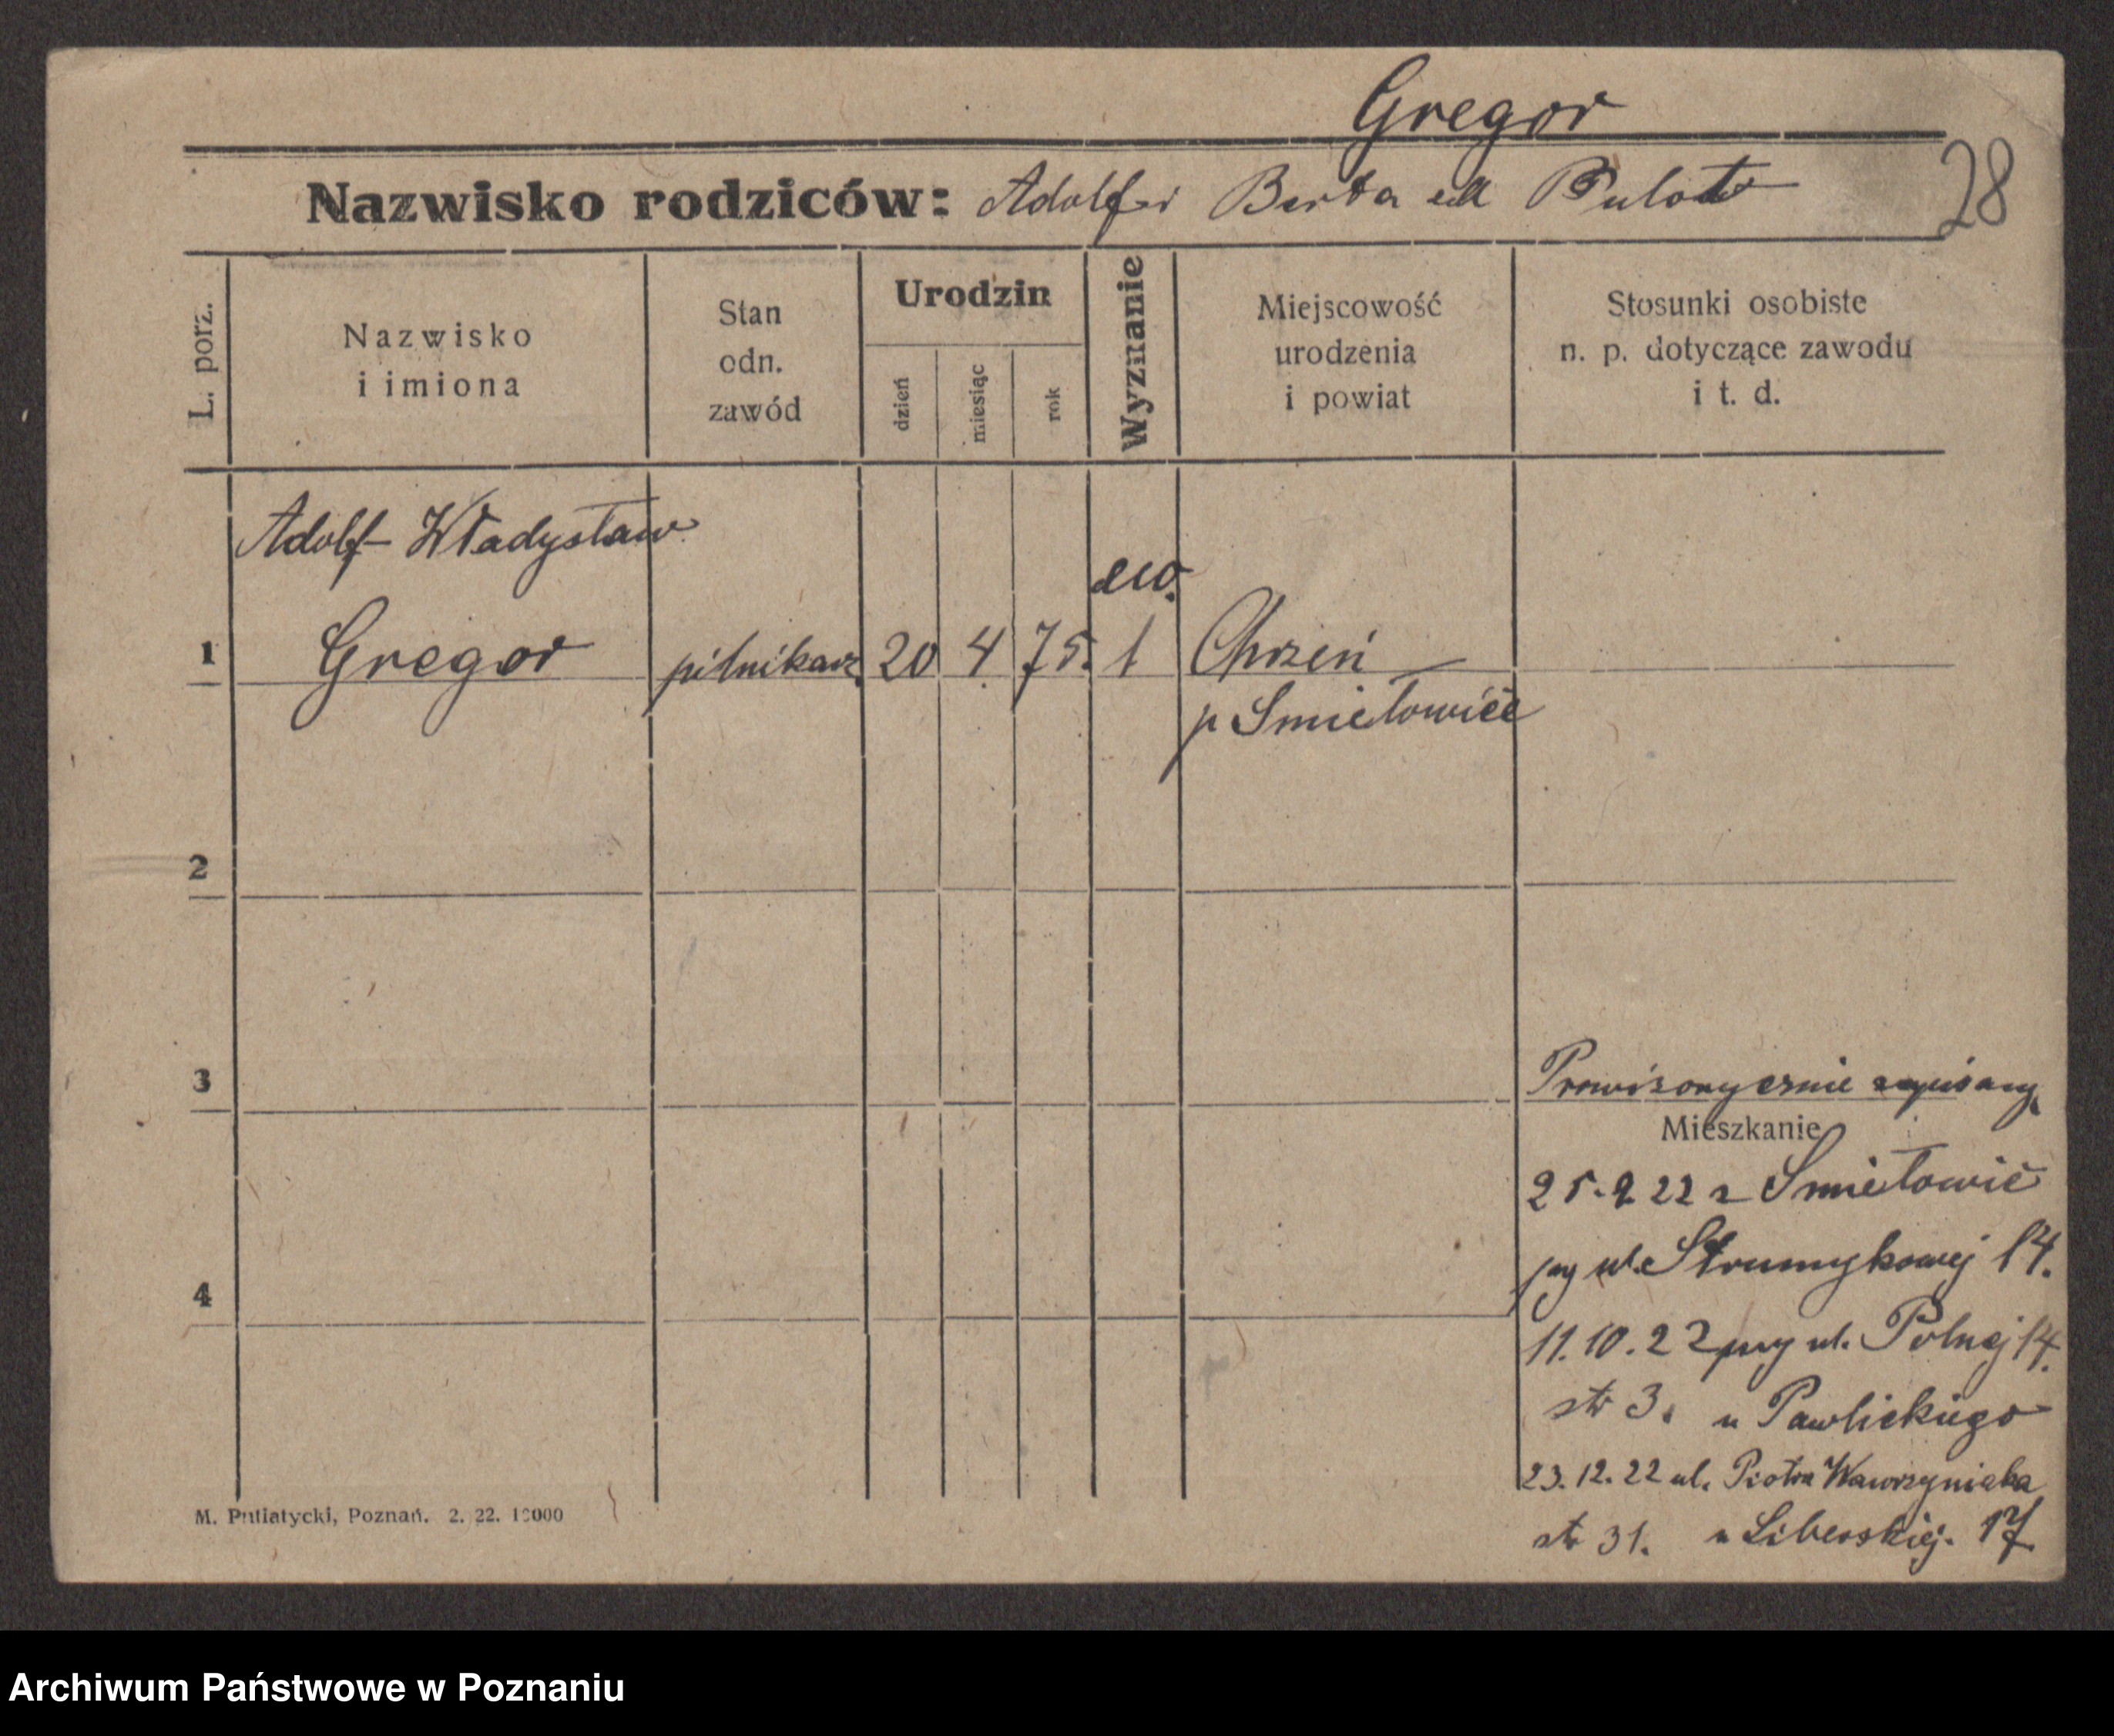 Gregor
28
Nazwisko rodziców: Adolf i Berta
L. porz.
Nazwisko
i imiona
Stan
odn.
zawód
Urodzin
dzień
miesiąc
rok
Wyznanie
Miejscowość
urodzenia
i powiat
Stosunki osobiste
n. p. dotyczące zawodu
i t. d.
Adolf-Władysław
ew.
1 Gregor pilnikarz 20 4 75. 1 Chrzeń
p Smiełowice
2
3
Prowizorycznie zapisany
Mieszkanie
25.9 22 z Smiełowic
przy ul. Strumykowej 14.
4
11.10.22 przy ul. Polnej 14.
str 3. u Pawlickiego
23.12.22 ul. Piotra Wawrzyniaka
str 31. u Liberskiej. 17
M. Putiatycki, Poznań. 2. 22. 10000
Archiwum Państwowe w Poznaniu